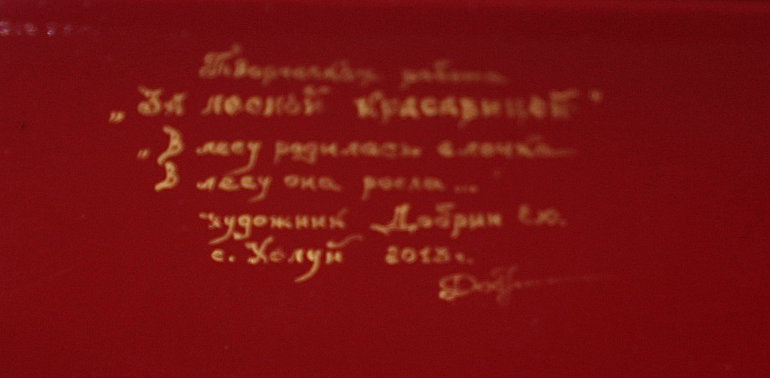 Творческая работа
„За лесной красавицей”
„В лесу родилась елочка
В лесу она росла...
художник Добрин С.Ю.
с. Холуй 2013 г.